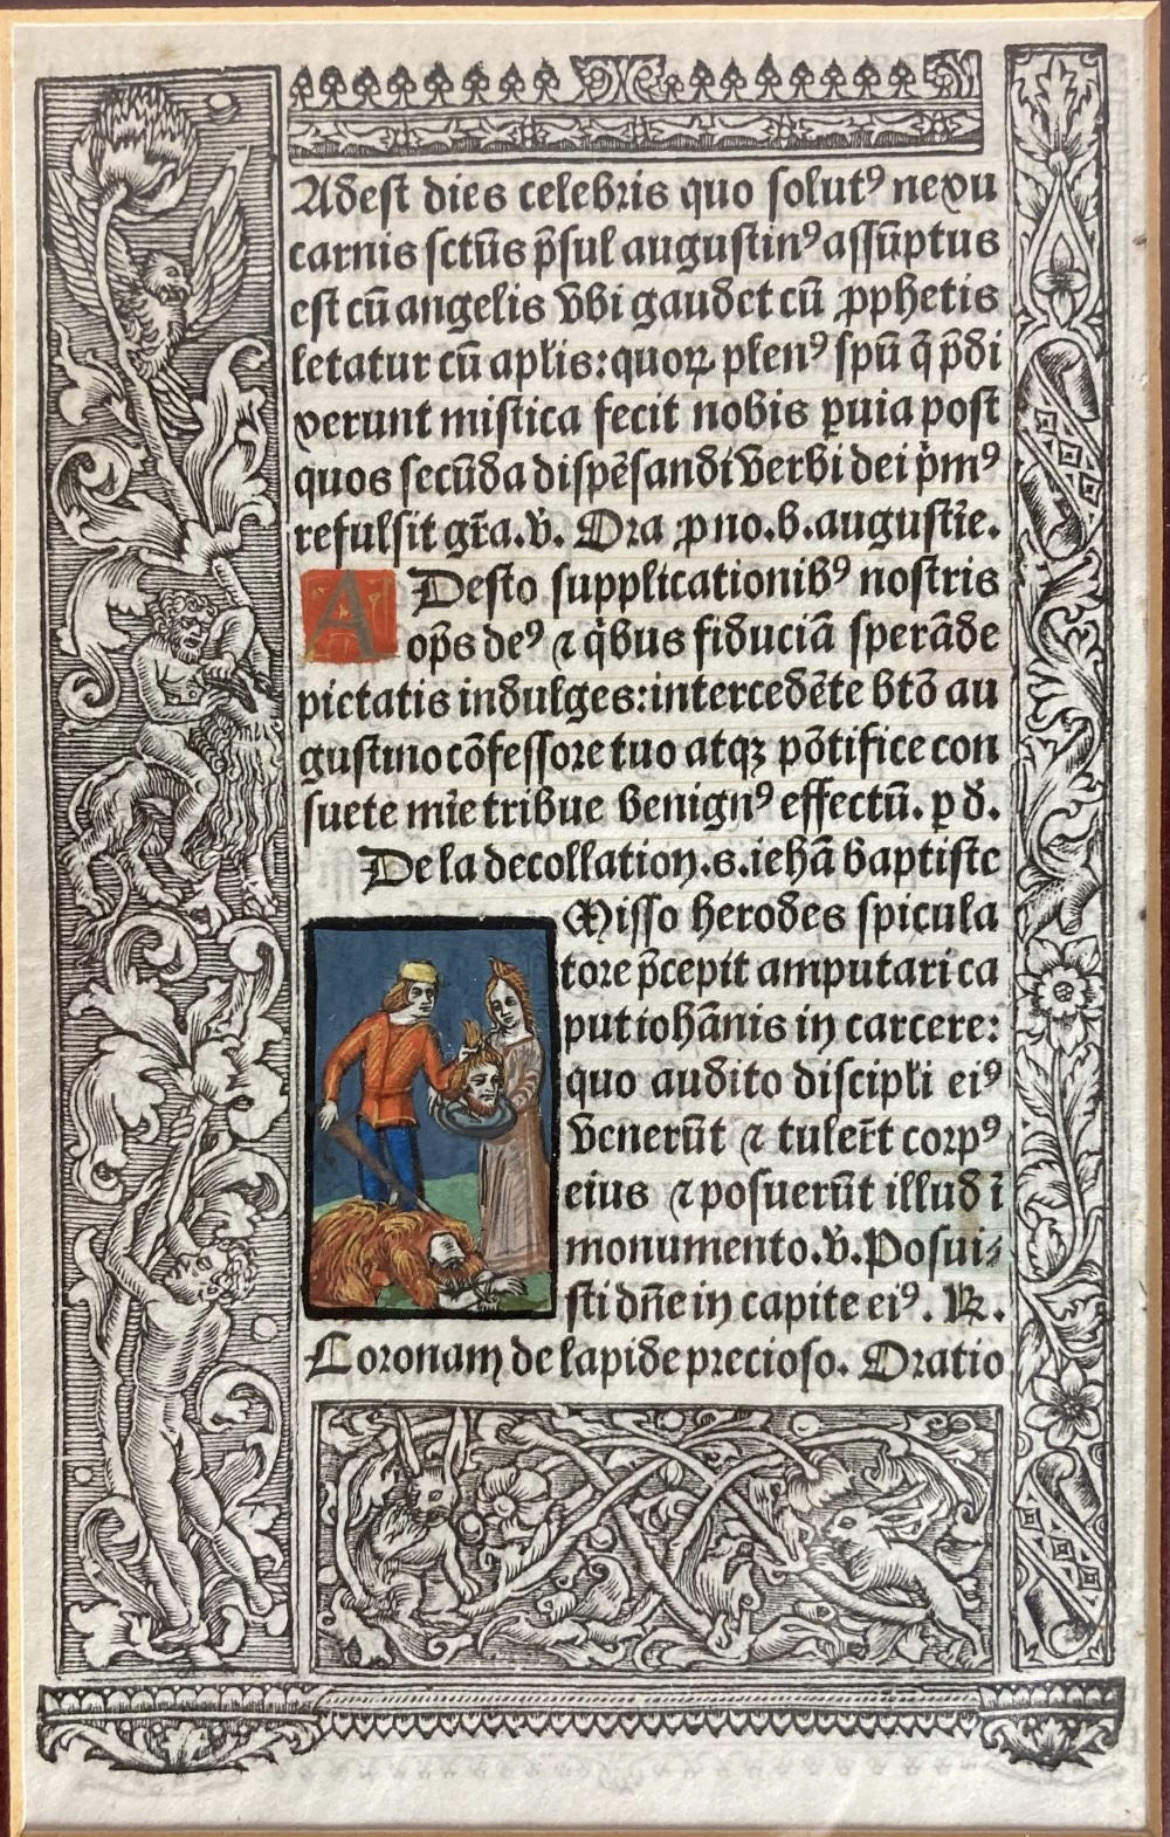 Adest dies celebris quo solutꝰ nexu
carnis sctūs p̄sul augustinꝰ assūptus
est cū angelis vbi gaudet cū ꝓphetis
letatur cū apl̄is: quoꝝ plenꝰ spū q̄ p̄di
xerunt mistica fecit nobis ꝑuia post
quos secūda dispēsandi verbi dei p̄mꝰ
refulsit gr̄a. v̄. Ora ꝓ no. b. augustīe.
ADesto supplicationibꝰ nostris
op̄s deꝰ ⁊ q̇bus fiduciā sperāde
pietatis indulges: intercedēte btō au
gustino cōfessore tuo atqꝫ pōtifice con
suete mīe tribue benignꝰ effectū. ꝑ d̄.
De la decollation. s. iehā baptiste
Misso herodes spicula
tore p̄cepit amputari ca
put iohānis in carcere:
quo audito discipl̄i eiꝰ
venerūt ⁊ tuler̄t corpꝰ
eius ⁊ posuerūt illud ī
monumento. v̄. Posui⸗
sti dn̄e in capite eiꝰ. ꝶ.
Coronam de lapide precioso. Oratio